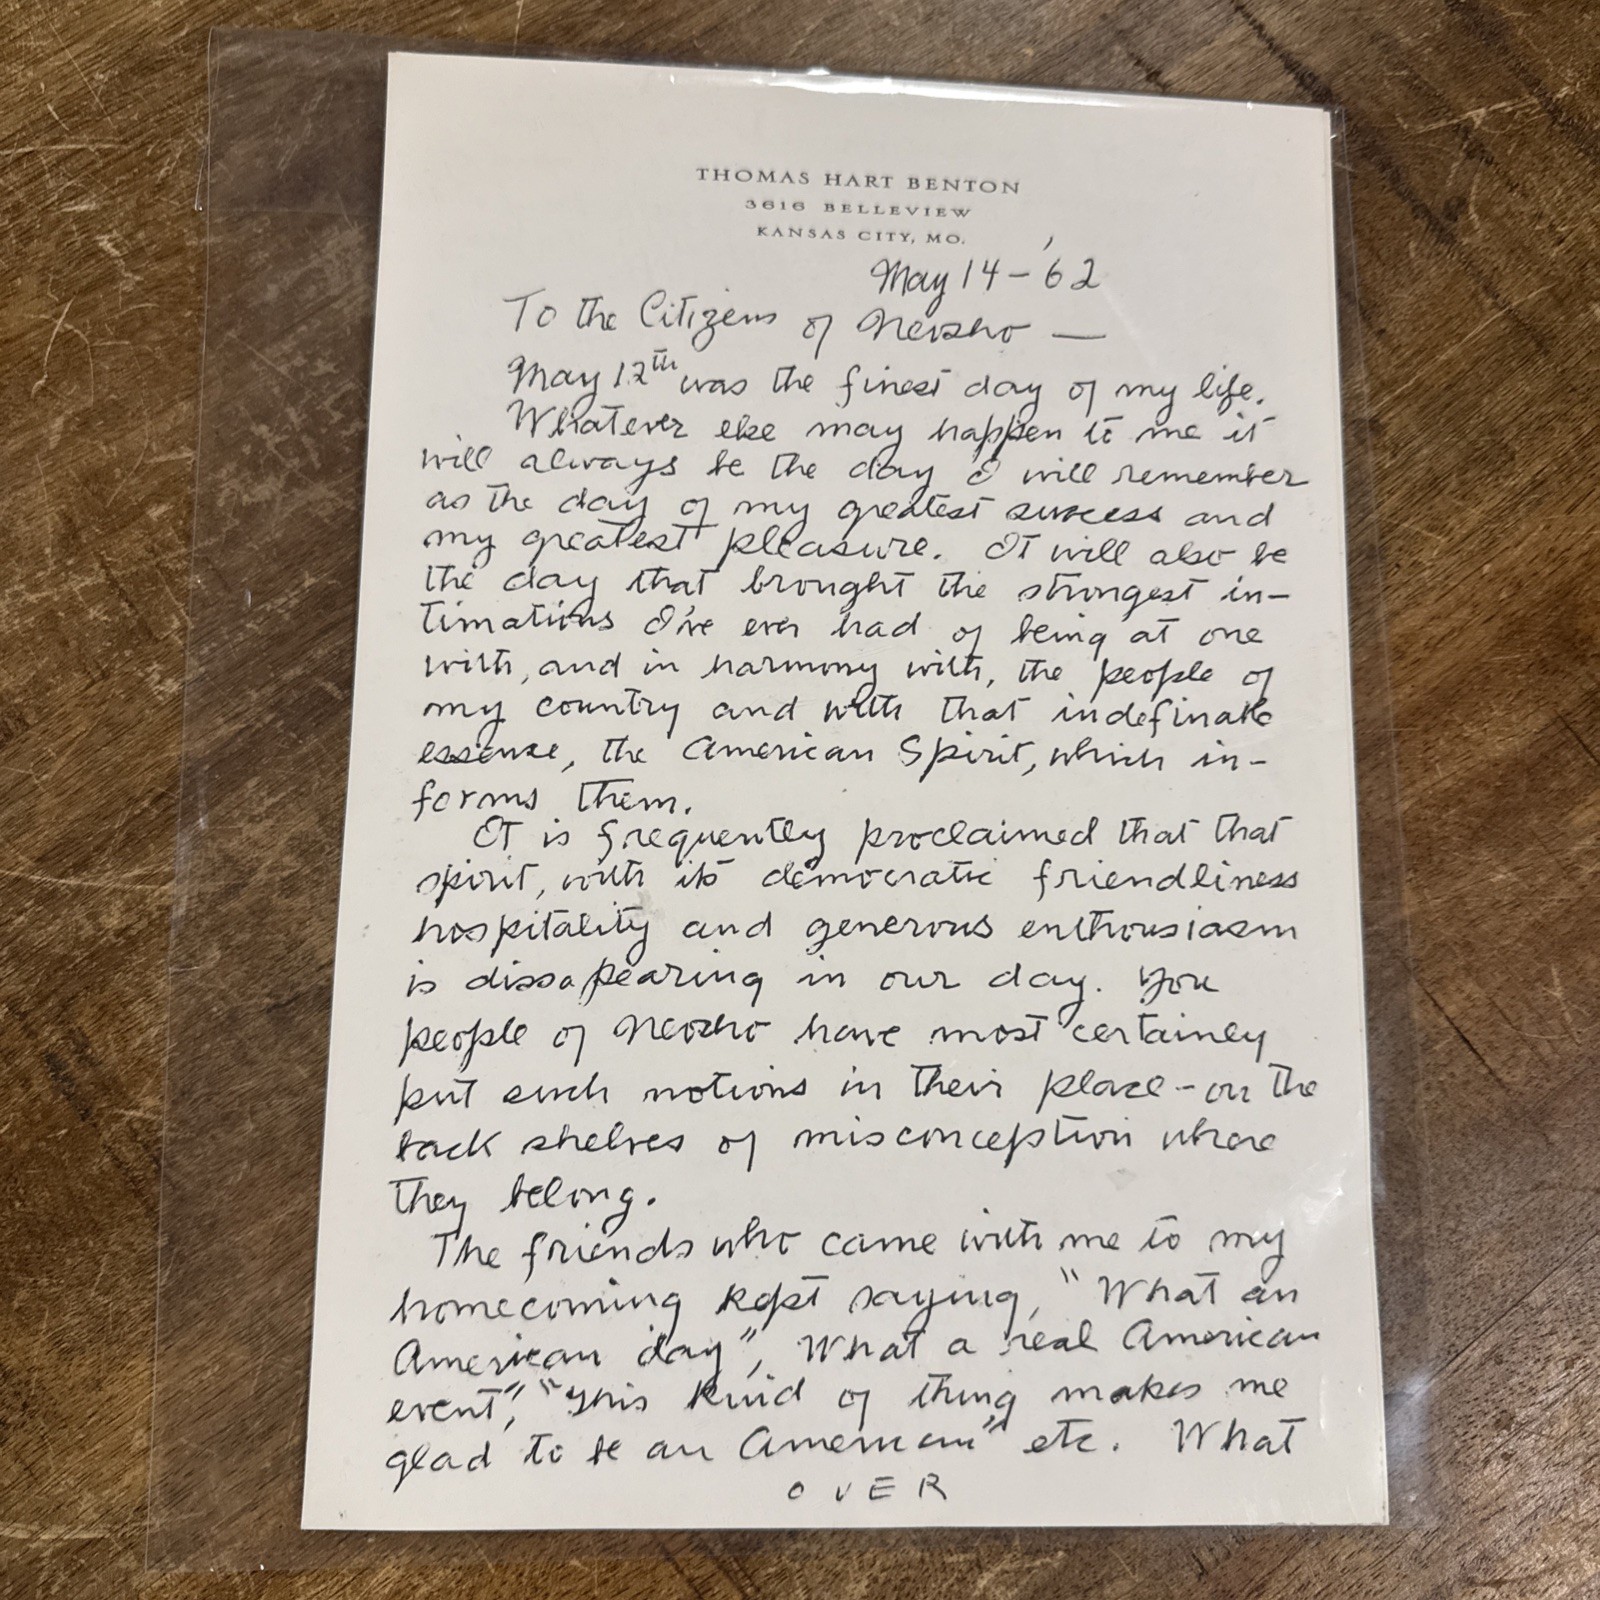 THOMAS HART BENTON
3616 BELLEVIEW
KANSAS CITY, MO.
May 14 - '62
To the Citizens of Neosho —
May 12th was the finest day of my life.
Whatever else may happen to me it
will always be the day I will remember
as the day of my greatest success and
my greatest pleasure. It will also be
the day that brought the strongest in-
timations I've ever had of being at one
with, and in harmony with, the people of
my country and with that indefinate
essense, the American Spirit, which in-
forms them.
It is frequently proclaimed that that
spirit, with its democratic friendliness
hospitality and generous enthousiasm
is dissapearing in our day. You
people of Neosho have most certainey
put such notions in their place - on the
back shelves of misconception where
they belong.
The friends who came with me to my
homecoming kept saying, "What an
American day", What a real American
event", "This kind of thing makes me
glad to be an American" etc. What
OVER